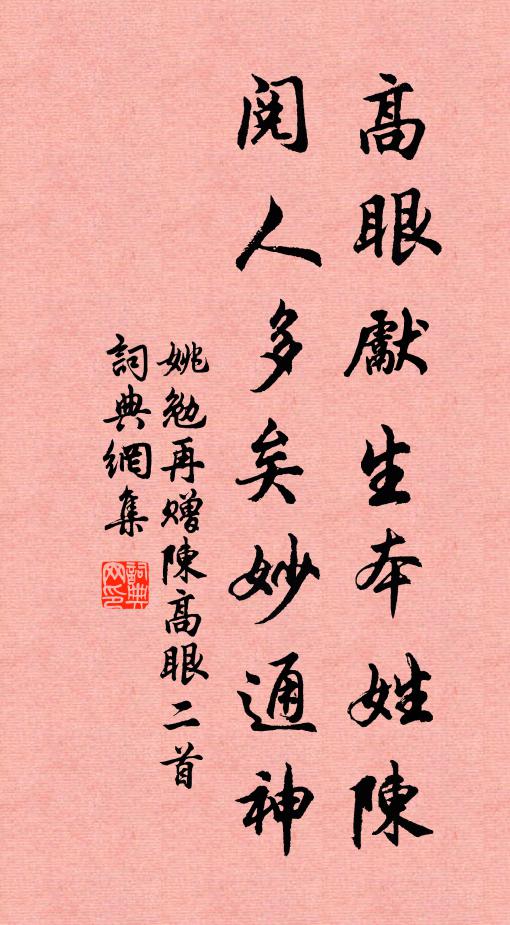 高眼獻生本姓陳
閱人多矣妙通神
姚勉再贈陳高眼二首
詞典網集
詞典網印